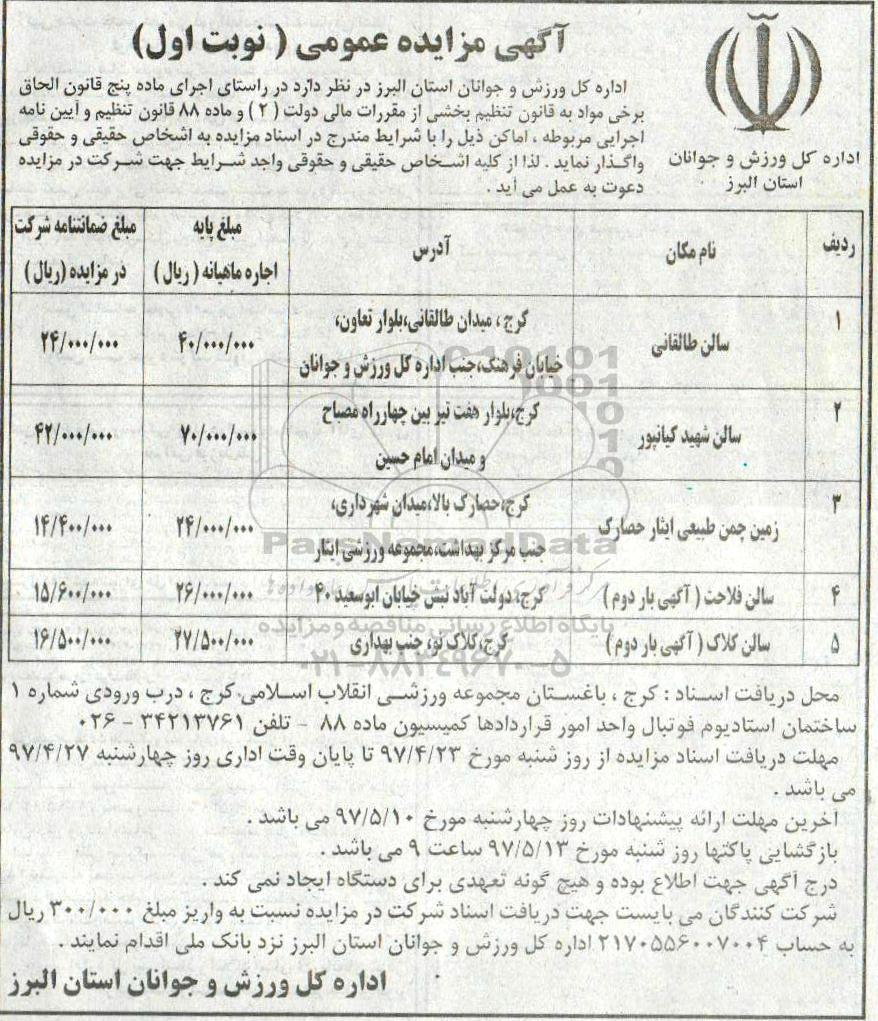 آگهی مزایده عمومی ( نوبت اول)
اداره کل ورزش و جوانان
استان البرز
اداره کل ورزش و جوانان استان البرز در نظر دارد در راستای اجرای ماده پنج قانون الحاق
برخی مواد به قانون تنظیم بخشی از مقررات مالی دولت ( ۲ ) و ماده ۸۸ قانون تنظیم و آیین نامه
اجرایی مربوطه ، اماکن ذیل را با شرایط مندرج در اسناد مزایده به اشخاص حقیقی و حقوقی
واگذار نماید . لذا از کلیه اشخاص حقیقی و حقوقی واجد شرایط جهت شرکت در مزایده
دعوت به عمل می آید .
ردیف نام مکان آدرس مبلغ پایه اجاره ماهیانه ( ریال ) مبلغ ضمانتنامه شرکت در مزایده (ریال )
۱ سالن طالقانی کرج ، میدان طالقانی،بلوار تعاون، خیابان فرهنگ،جنب اداره کل ورزش و جوانان ۴۰/۰۰۰/۰۰۰ ۲۴/۰۰۰/۰۰۰
۲ سالن شهید کیانپور کرج،بلوار هفت تیر بین چهارراه مصباح و میدان امام حسین ۷۰/۰۰۰/۰۰۰ ۴۲/۰۰۰/۰۰۰
۳ زمین چمن طبیعی ایثار حصارک کرج،حصارک بالا،میدان شهرداری، جنب مرکز بهداشت،مجموعه ورزشی ایثار ۲۴/۰۰۰/۰۰۰ ۱۴/۴۰۰/۰۰۰
۴ سالن فلاحت ( آگهی بار دوم ) کرج، دولت آباد نبش خیابان ابوسعید ۴۰ ۲۶/۰۰۰/۰۰۰ ۱۵/۶۰۰/۰۰۰
۵ سالن کلاک ( آگهی بار دوم ) کرج،کلاک نو، جنب بهداری ۲۷/۵۰۰/۰۰۰ ۱۶/۵۰۰/۰۰۰
ParsNamadData
پایگاه اطلاع رسانی مناقصه و مزایده
۰۲۱-۸۸۳۴۹۶۷۰-۵
محل دریافت اسناد : کرج ، باغستان مجموعه ورزشی انقلاب اسلامی کرج ، درب ورودی شماره ۱
ساختمان استادیوم فوتبال واحد امور قراردادها کمیسیون ماده ۸۸ - تلفن ۳۴۲۱۳۷۶۱ - ۰۲۶
مهلت دریافت اسناد مزایده از روز شنبه مورخ ۹۷/۴/۲۳ تا پایان وقت اداری روز چهارشنبه ۹۷/۴/۲۷
می باشد .
آخرین مهلت ارائه پیشنهادات روز چهارشنبه مورخ ۹۷/۵/۱۰ می باشد .
بازگشایی پاکتها روز شنبه مورخ ۹۷/۵/۱۳ ساعت ۹ می باشد .
درج آگهی جهت اطلاع بوده و هیچ گونه تعهدی برای دستگاه ایجاد نمی کند .
شرکت کنندگان می بایست جهت دریافت اسناد شرکت در مزایده نسبت به واریز مبلغ ۳۰۰/۰۰۰ ریال
به حساب ۲۱۷۰۵۵۶۰۰۷۰۰۴ اداره کل ورزش و جوانان استان البرز نزد بانک ملی اقدام نمایند .
اداره کل ورزش و جوانان استان البرز